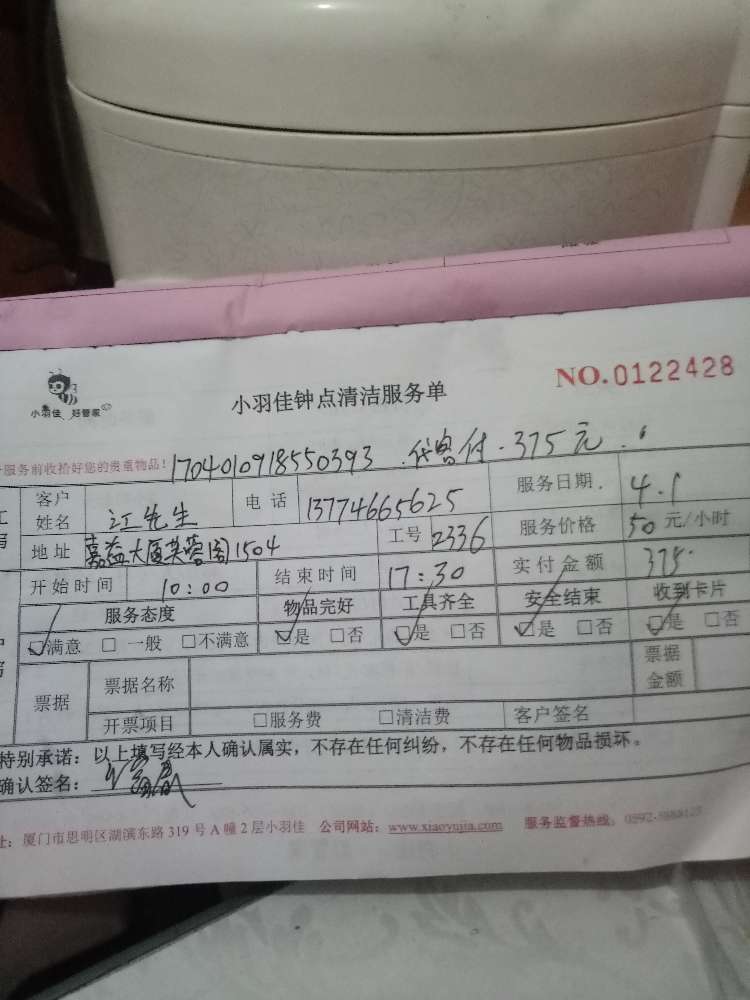 小羽佳、好管家
小羽佳钟点清洁服务单
NO.0122428
服务前收拾好您的贵重物品！1704010918550393 代客付.375元.
客户姓名 江先生 电话 13774665625 服务日期. 4.1
地址 嘉益大厦芙蓉阁1504 工号 2336 服务价格 50元/小时
开始时间 10:00 结束时间 17:30 实付金额 375.
服务态度 物品完好 工具齐全 安全结束 收到卡片
☑满意 □一般 □不满意 ☑是 □否 ☑是 □否 ☑是 □否 ☑是 □否
票据 票据名称 票据金额
开票项目 □服务费 □清洁费 客户签名
特别承诺：以上填写经本人确认属实，不存在任何纠纷，不存在任何物品损坏。
确认签名：
址：厦门市思明区湖滨东路319号A幢2层小羽佳 公司网站：www.xiaoyujia.com 服务监督热线：